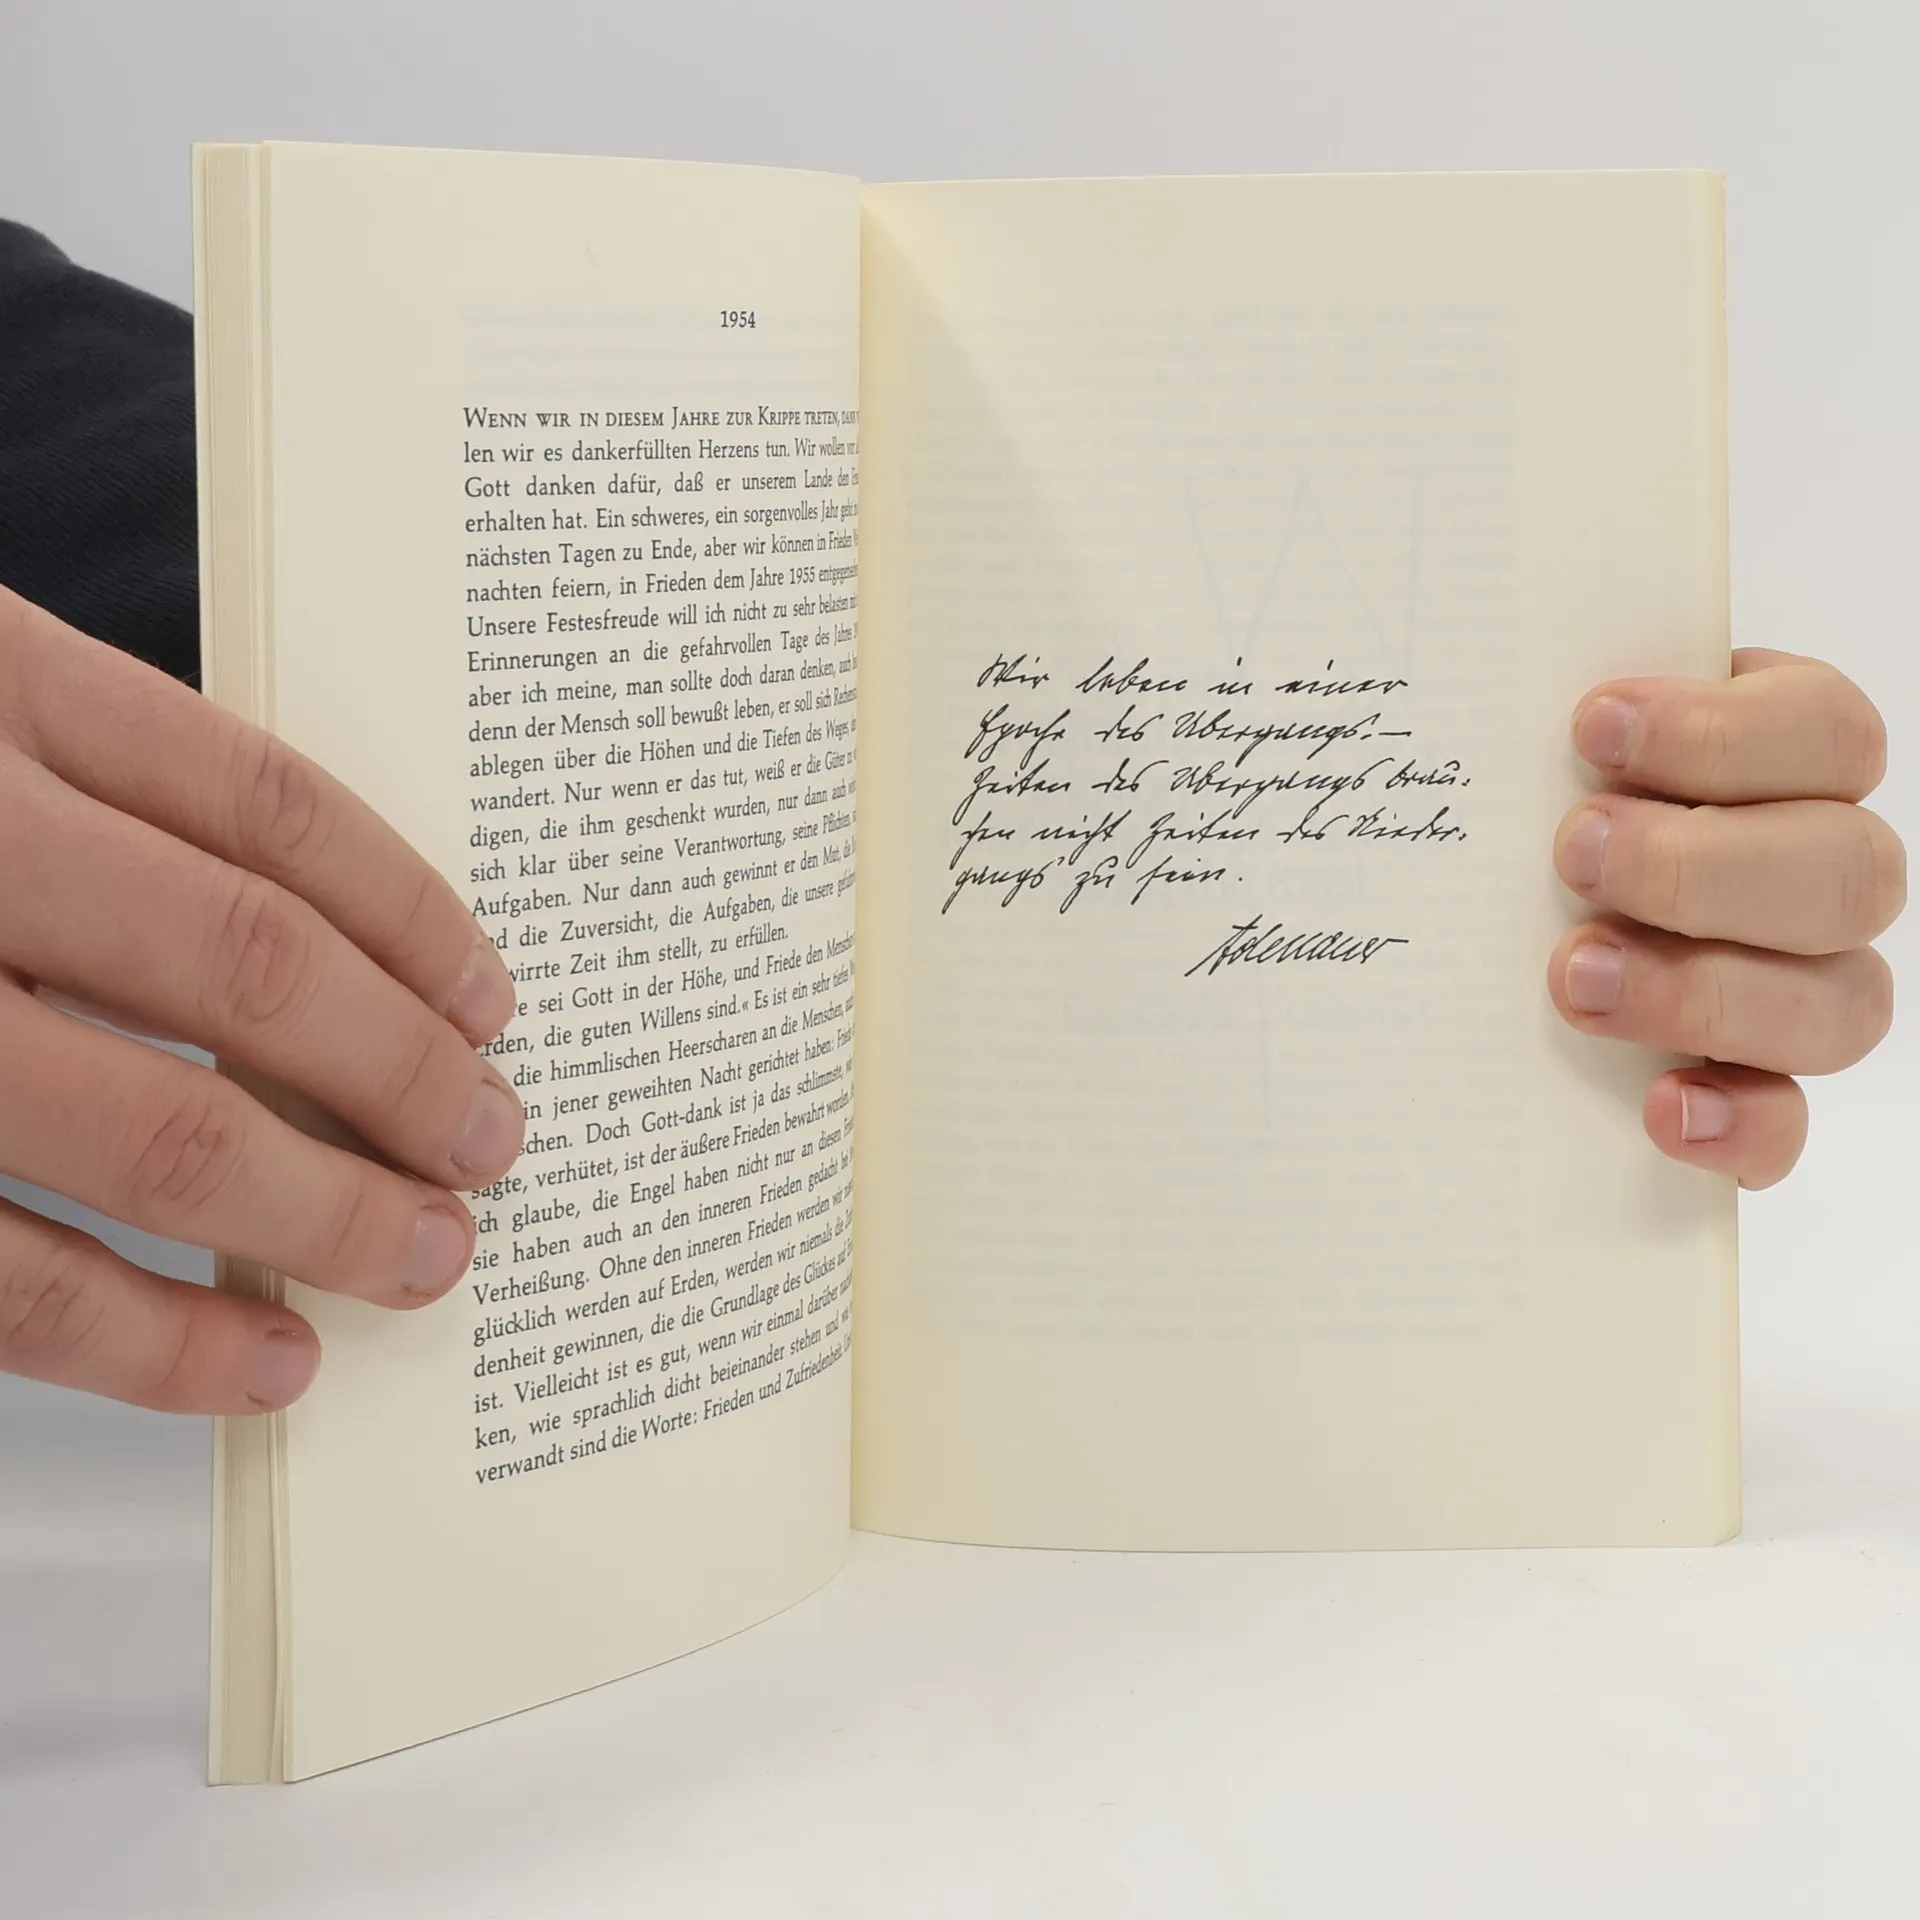 1954
WENN WIR IN DIESEM JAHRE ZUR KRIPPE TRETEN,
len wir es dankerfüllten Herzens tun. Wir wollen vor
Gott danken dafür, daß er unserem Lande den
erhalten hat. Ein schweres, ein sorgenvolles Jahr geht
nächsten Tagen zu Ende, aber wir können in Frieden
nachten feiern, in Frieden dem Jahre 1955
Unsere Festesfreude will ich nicht zu sehr belasten
Erinnerungen an die gefahrvollen Tage des Jahres
aber ich meine, man sollte doch daran denken, auch
denn der Mensch soll bewußt leben, er soll sich
ablegen über die Höhen und die Tiefen des Weges,
wandert. Nur wenn er das tut, weiß er die Güter zu
digen, die ihm geschenkt wurden, nur dann auch
sich klar über seine Verantwortung, seine Pflichten,
Aufgaben. Nur dann auch gewinnt er den Mut, die
nd die Zuversicht, die Aufgaben, die unsere
wirrte Zeit ihm stellt, zu erfüllen.
re sei Gott in der Höhe, und Friede den Menschen
rden, die guten Willens sind.« Es ist ein sehr tiefes
die himmlischen Heerscharen an die Menschen,
in jener geweihten Nacht gerichtet haben: Friede
schen. Doch Gott-dank ist ja das schlimmste,
sagte, verhütet, ist der äußere Frieden bewahrt worden,
ich glaube, die Engel haben nicht nur an diesen
sie haben auch an den inneren Frieden gedacht bei
Verheißung. Ohne den inneren Frieden werden wir
glücklich werden auf Erden, werden wir niemals die
denheit gewinnen, die die Grundlage des Glückes auf
ist. Vielleicht ist es gut, wenn wir einmal darüber
ken, wie sprachlich dicht beieinander stehen und
verwandt sind die Worte: Frieden und Zufriedenheit.
Wir leben in einer
Epoche des Übergangs. —
Zeiten des Übergangs brau-
chen nicht Zeiten des Nieder-
gangs zu sein.
Adenauer